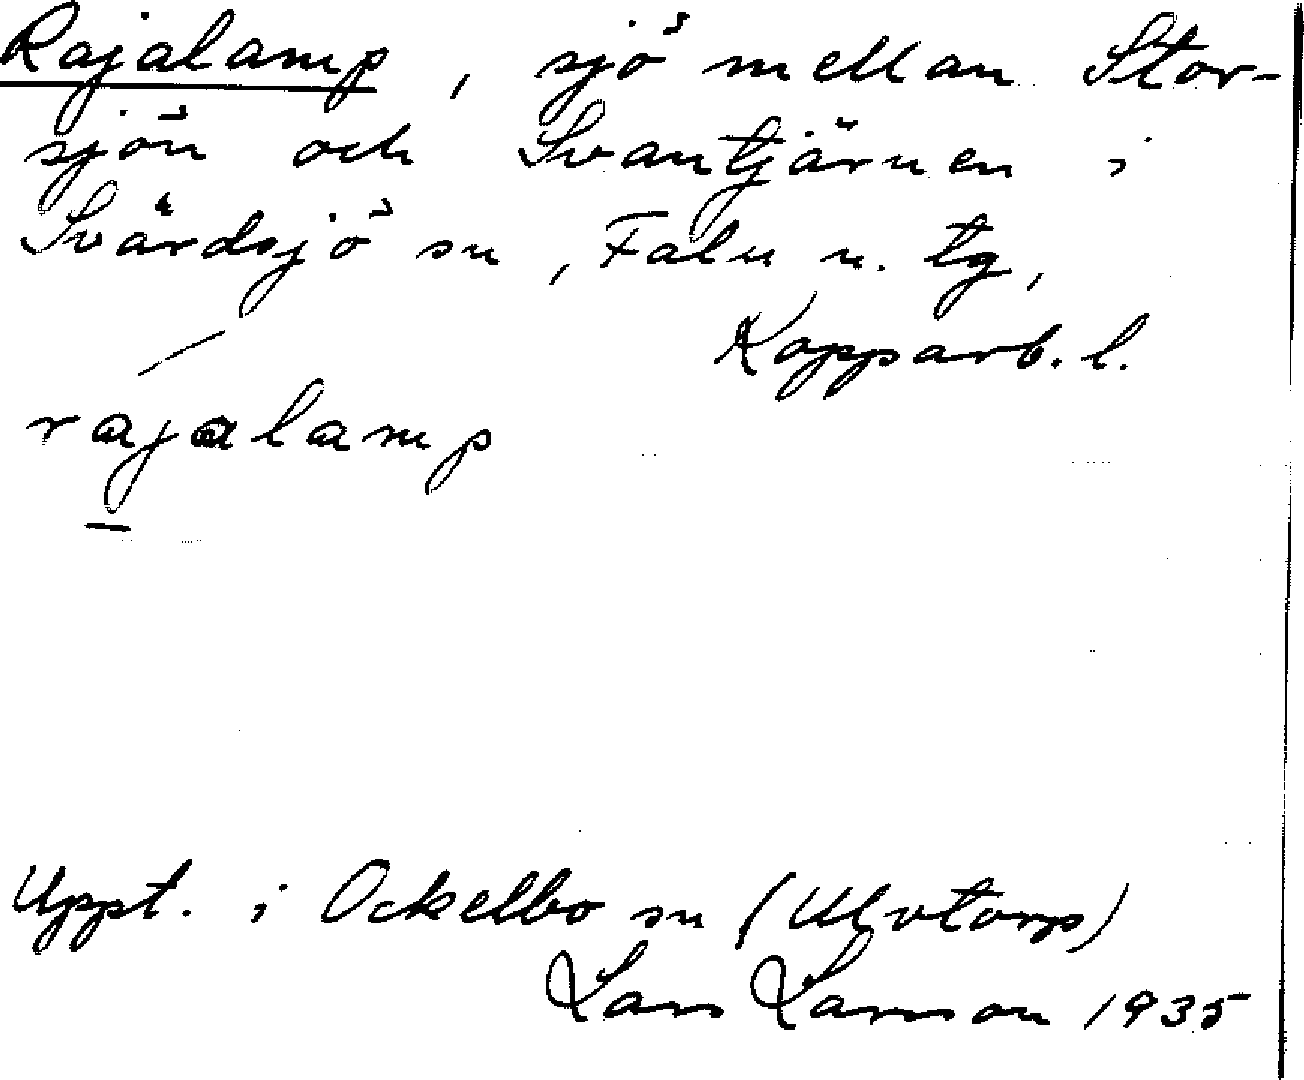 Rajalamp, sjö mellan Stor-
sjön och Svantjärnen i
Svärdsjö sn, Falu n. tg,
Kopparb. l.
rajalamp
Uppt. i Ockelbo sn (Ulvtorp)
Lars Larsson 1935